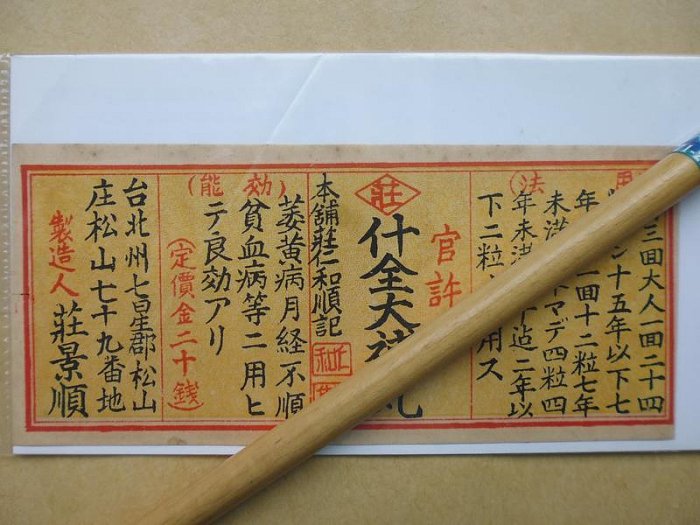 用
(法
三回大人一回二十四
十五年以下七
年 一回十二粒七年
未満 マデ四粒四
年未満 丁造二年以
下二粒 用ス
官許
莊
什全大
丸
本舖莊仁和順記
仁和
効
(能)
萎黄病月経不順
貧血病等ニ用ヒ
テ良効アリ
(定價金二十銭)
台北州七星郡松山
庄松山七十九番地
製造人
莊景順